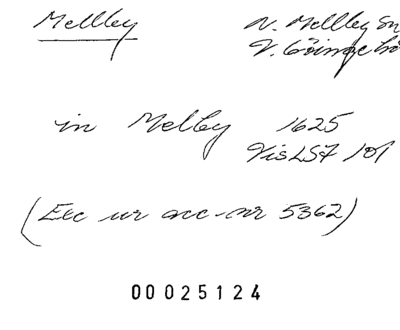 Mellby
N. Mellby sn
V. Göinge hd
in Melby 1625
VisLSF 101
(Exc ur acc-nr 5362)
00025124